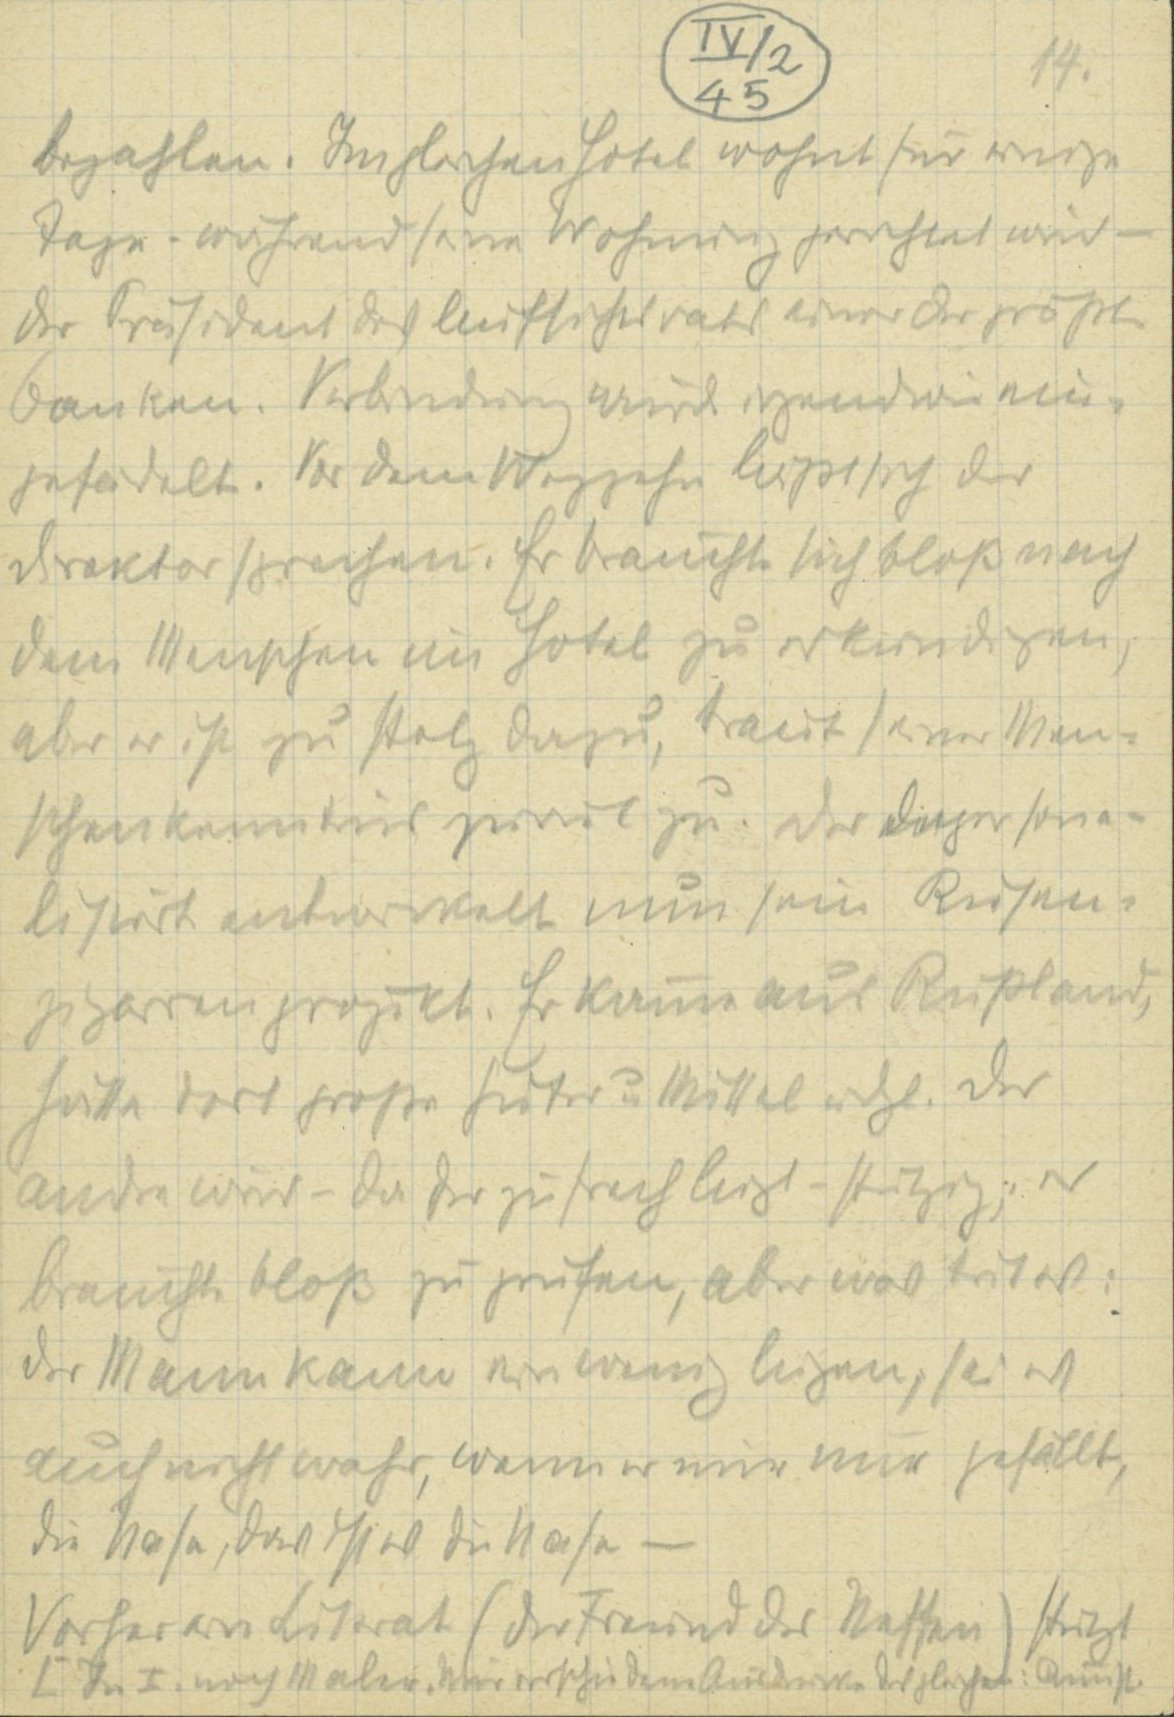 IV/2
45
14.
bezahlen. Im gleichen Hotel wohnt für einige
Tage - während seine Wohnung gerichtet wird -
der Präsident des Aufsichtsrats einer der größten
Banken. Verbindung wird irgendwie ein-
gefädelt. Vor dem Weggehn läßt sich der
Direktor sprechen. Er brauchte sich bloß nach
dem Menschen im Hotel zu erkundigen,
aber er ist zu stolz dazu, traut seiner Men-
schenkenntnis zuviel zu. Der Depersona-
lisirte entwickelt nun sein Riesen-
zigarrenprojekt. Er käme aus Rußland,
hätte dort große Güter u Mittel udgl. Der
andre wird - da der zu frech lügt - stutzig; er
brauchte bloß zu prüfen, aber was tut es:
der Mann kann ein wenig lügen, sei es
auch nicht wahr, wenn er mir nur gefällt,
die Nase, das ist es die Nase —
Vorher ein Literat (der Freund des Neffen) stutzt
[ In I. noch Maler. Nur verschiedene Ausdrücke desgleichen: